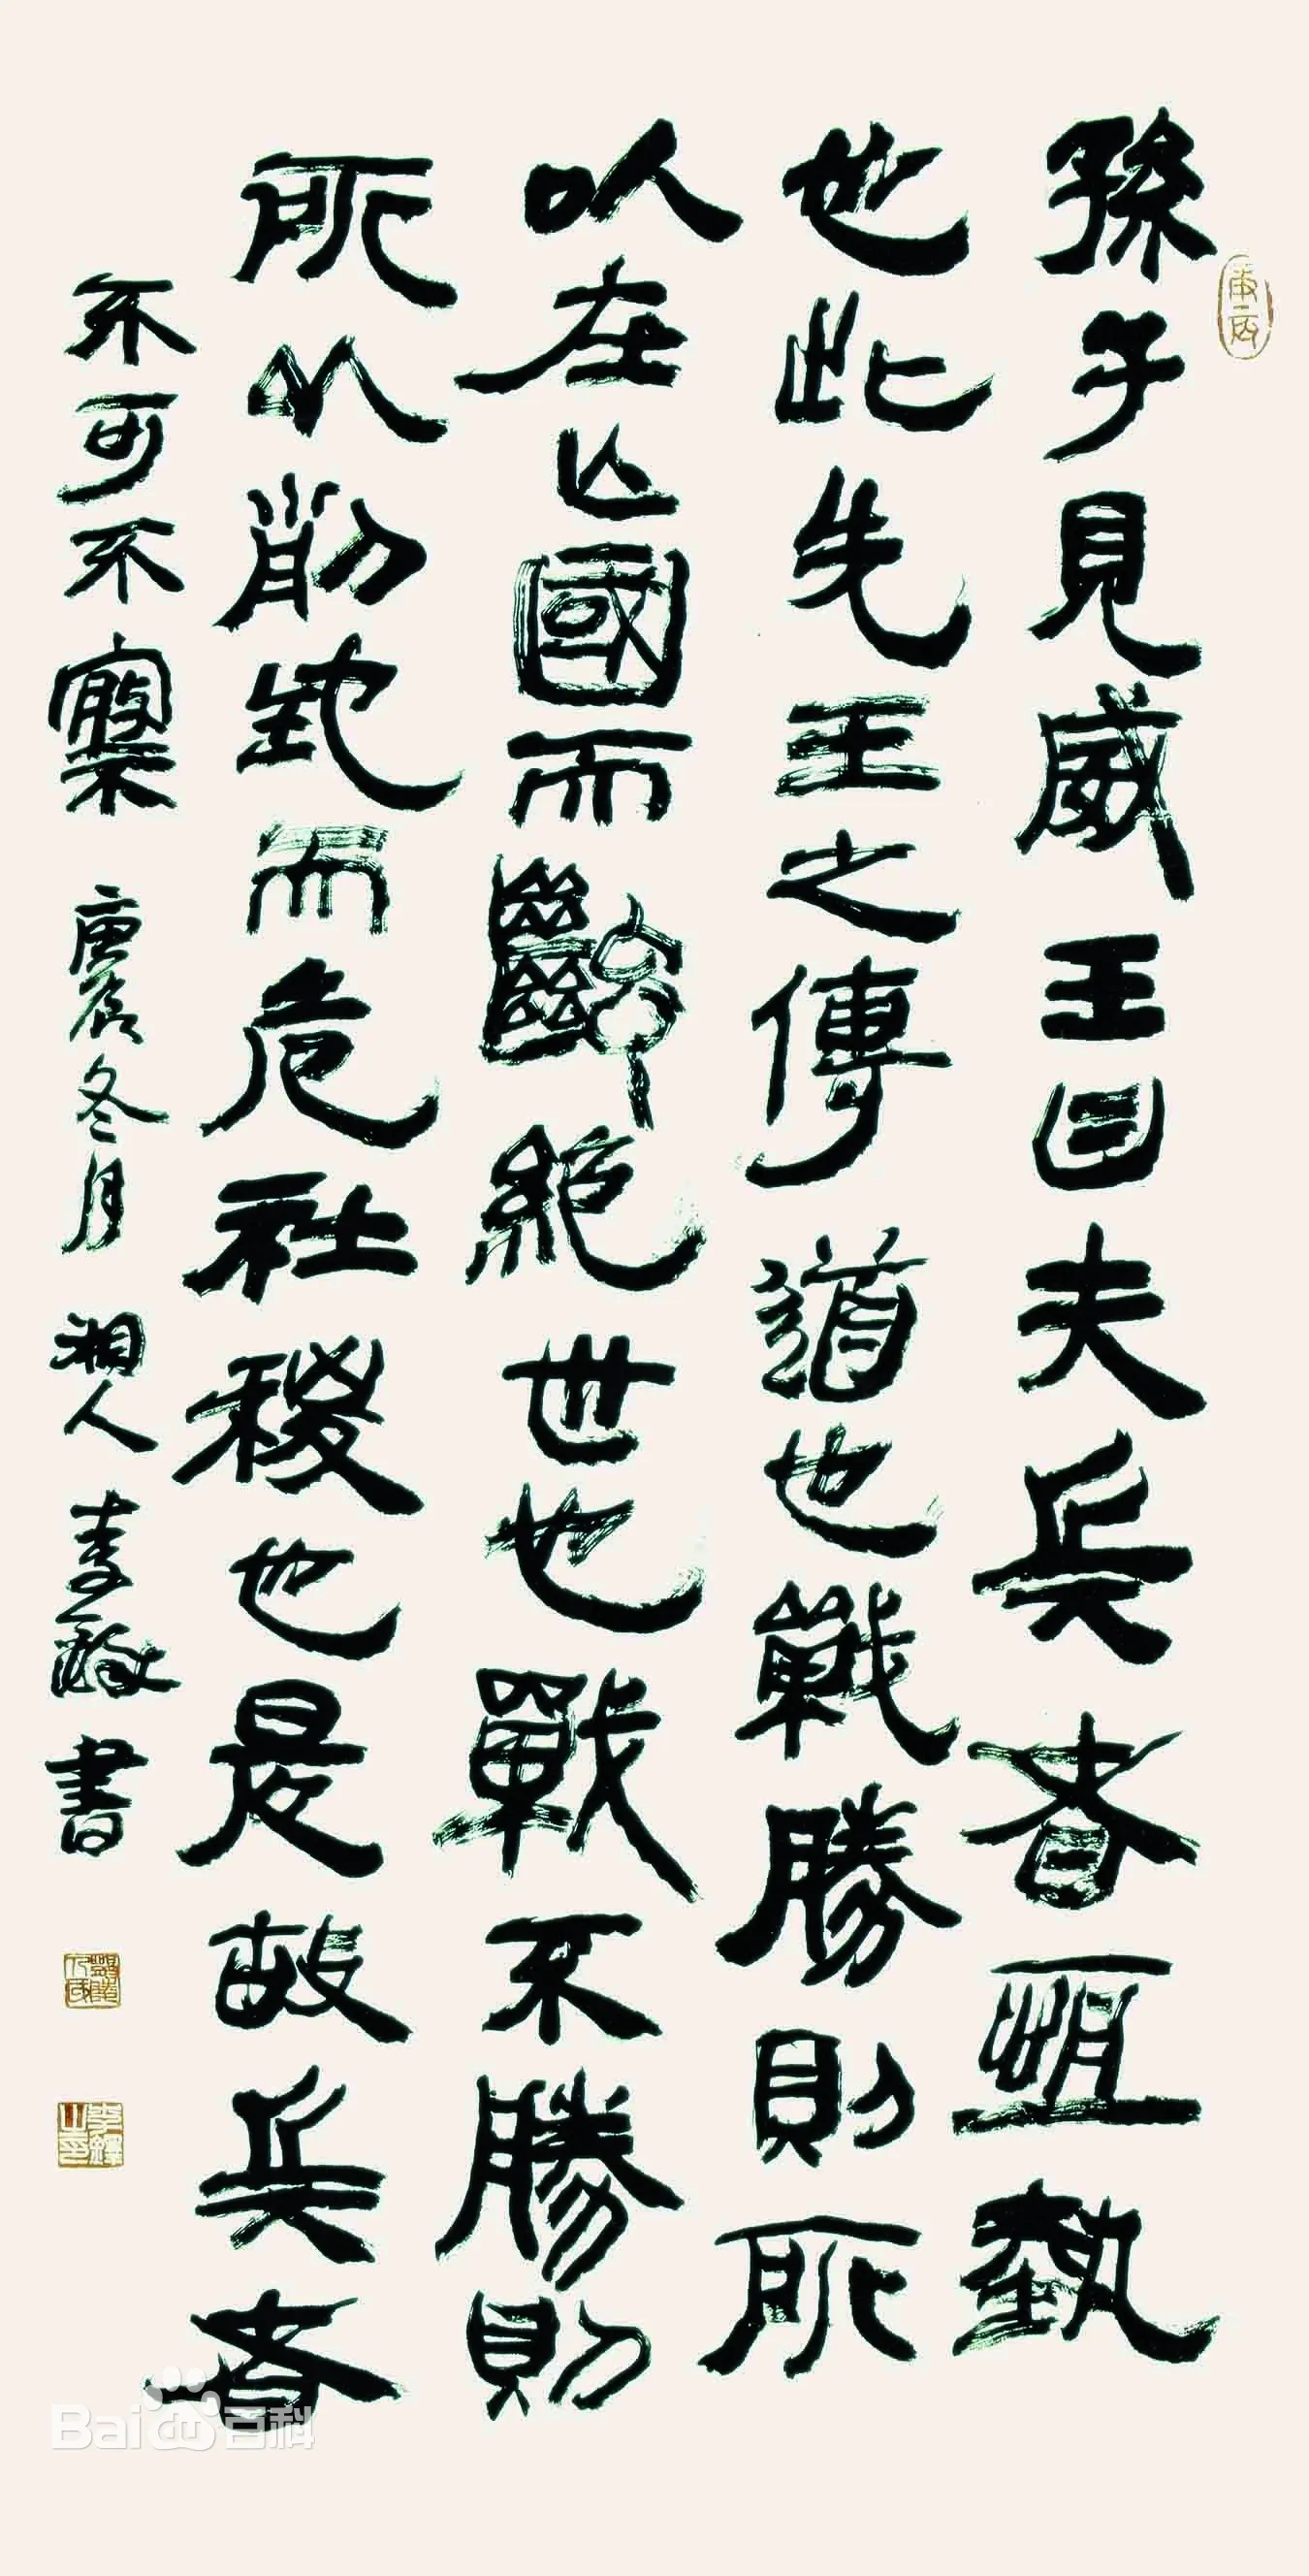 孫子見威王曰夫兵者恆埶
也此先王之傳道也戰勝則所
以在亡國而繼絕世也戰不勝則
所以削地而危社稷也是故兵者
不可不察 庚辰冬月 湘人 李鐸 書
李鐸之印
Baidu百科